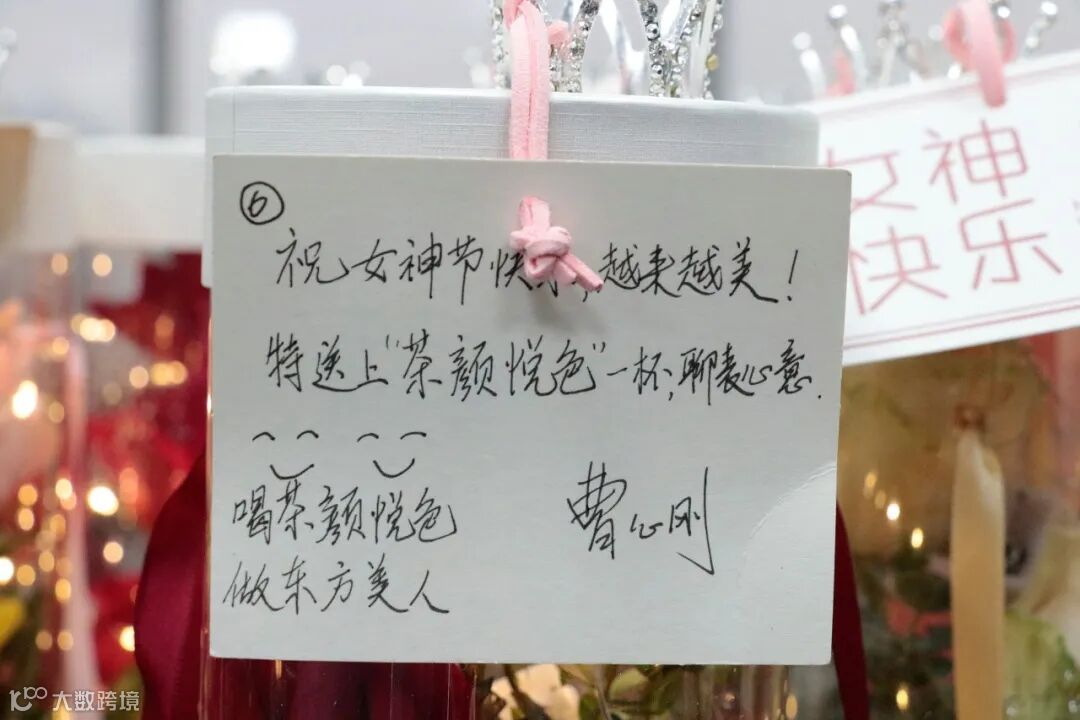 ⑥
祝女神节快乐,越来越美!
特送上"茶颜悦色"一杯,聊表心意.
喝茶颜悦色
做东方美人
曹心刚
女神
快乐
大数跨境